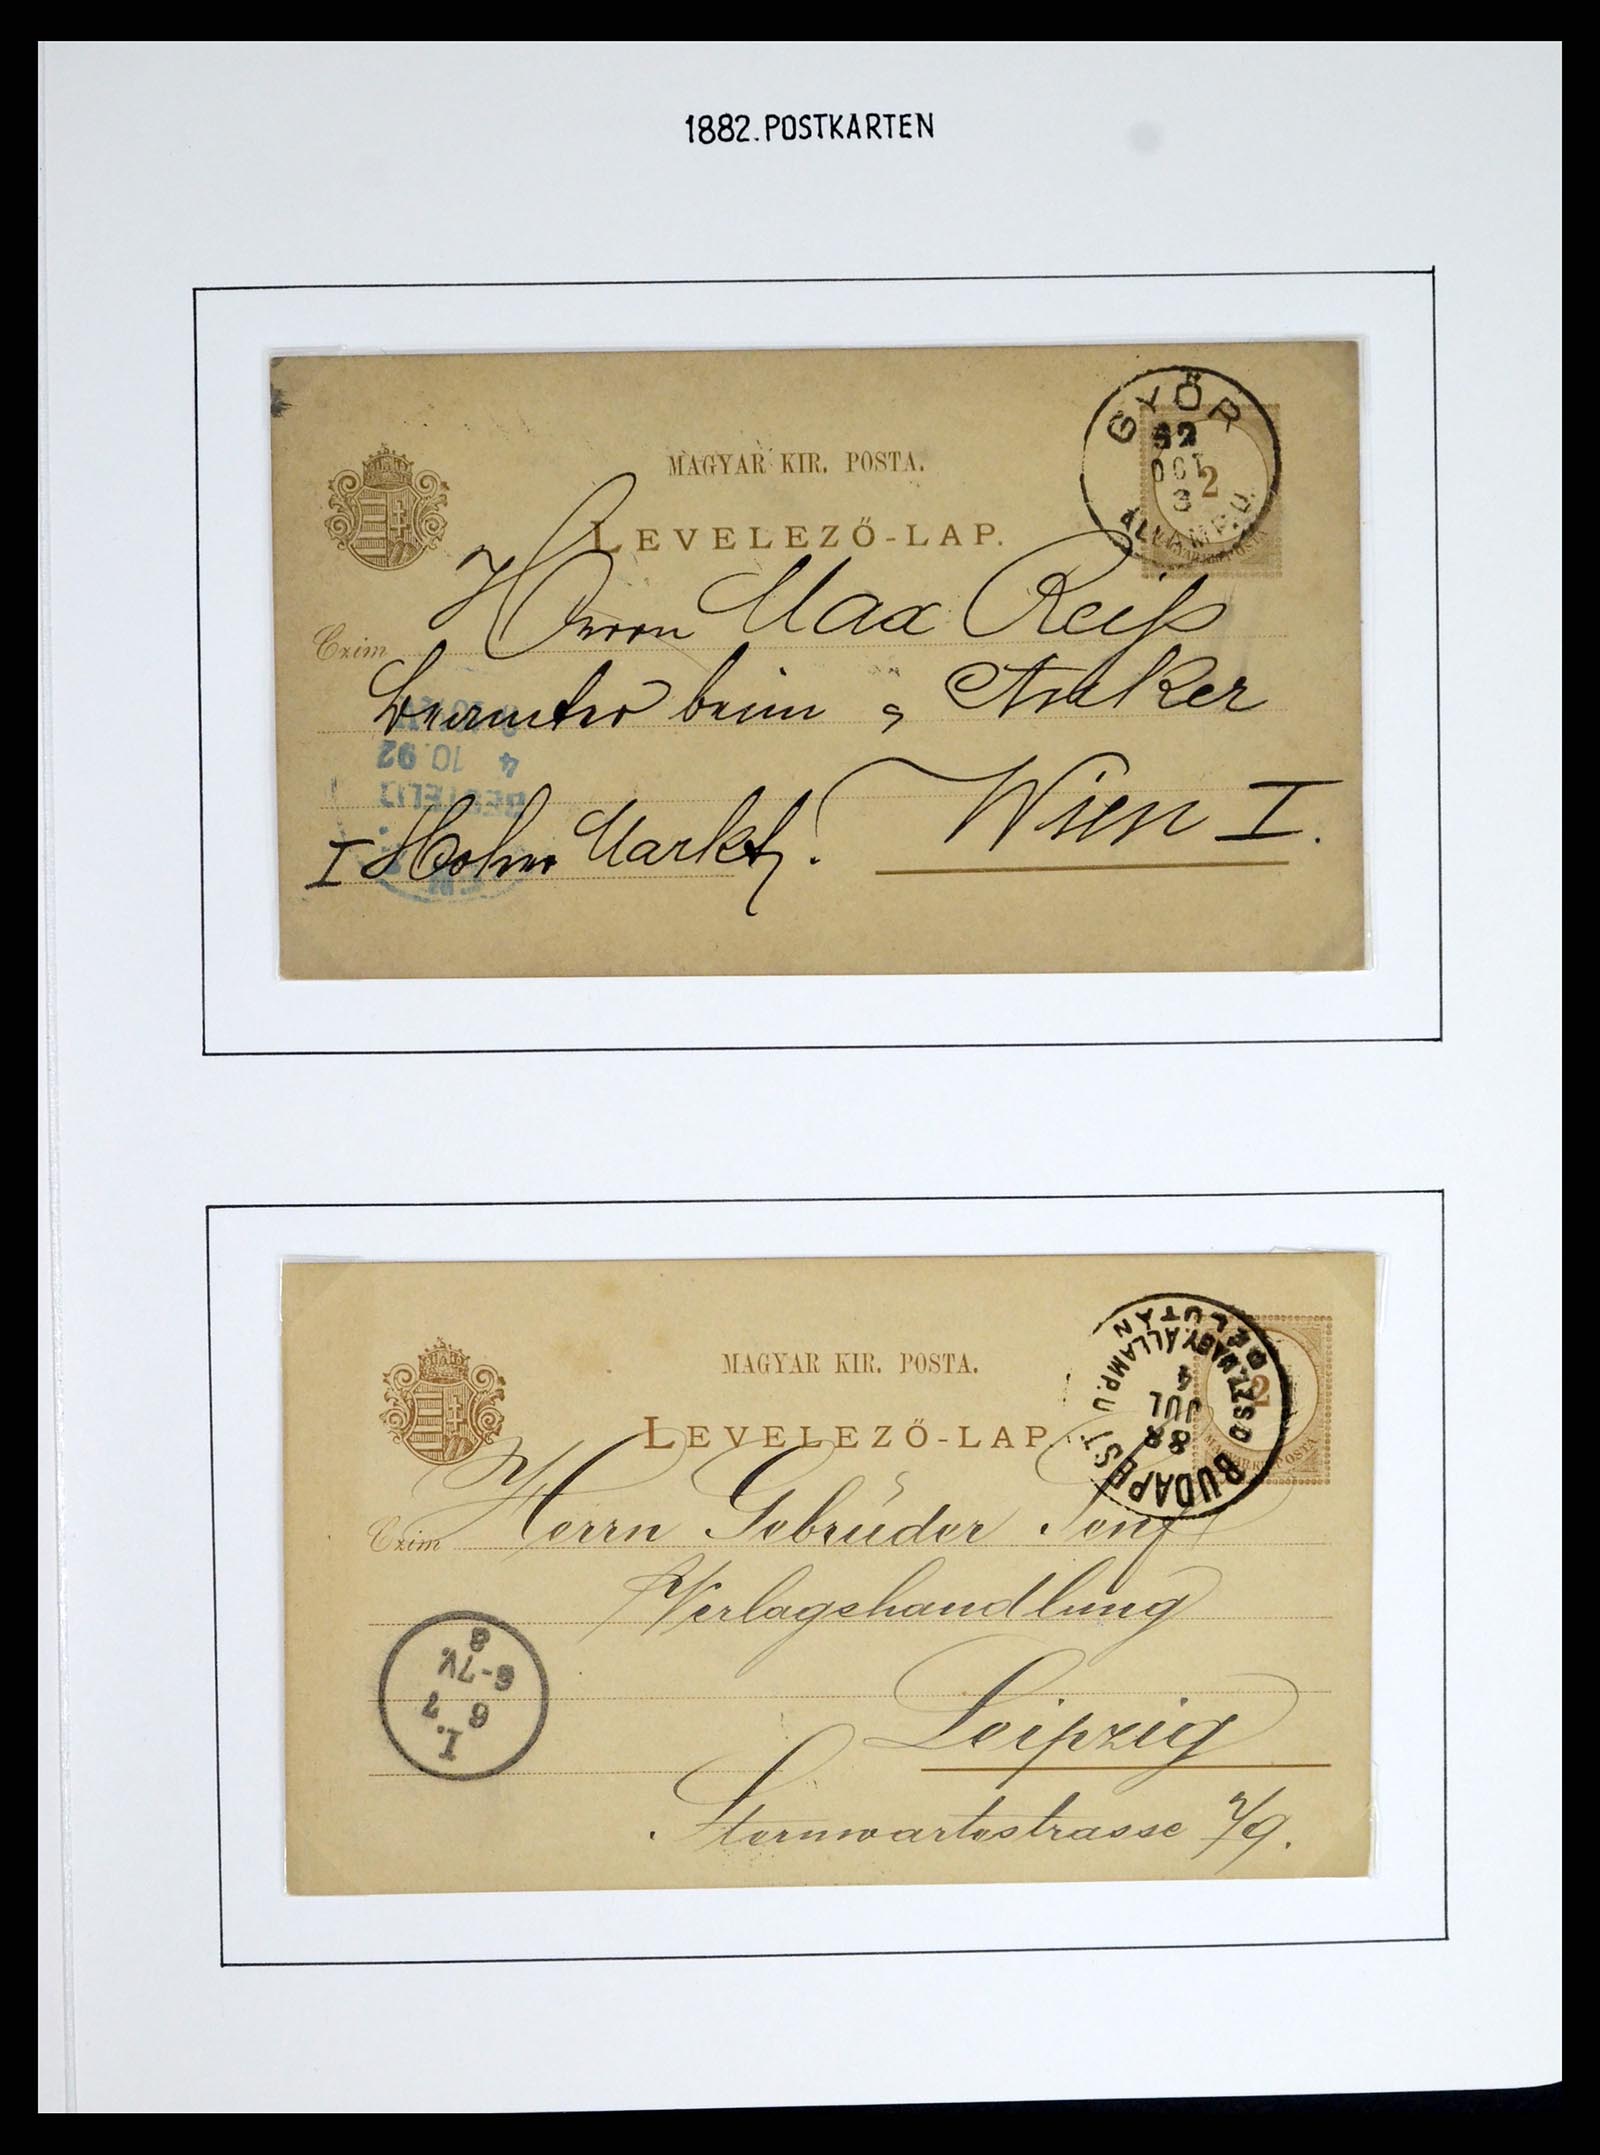 1882.POSTKARTEN
GYŐR
92
OCT
3
ÁLLAMP.U.
2
MAGYAR KIR. POSTA
MAGYAR KIR. POSTA.
LEVELEZŐ-LAP.
Czim
Herrn Max Reiß
Beamter beim „Anker
4 10.92
BESTELLT
I Hoher Markt. Wien I.
BUDAPEST
MAGY. ÁLLAMP.U
DÉLUTÁN
4
JUL
2
MAGYAR KIR. POSTA
MAGYAR KIR. POSTA.
LEVELEZŐ-LAP.
Czim
Herrn Gebrüder Senf
Verlagshandlung
Leipzig
Sternwartestrasse 7/9.
I.
6 7
6-7V.
8